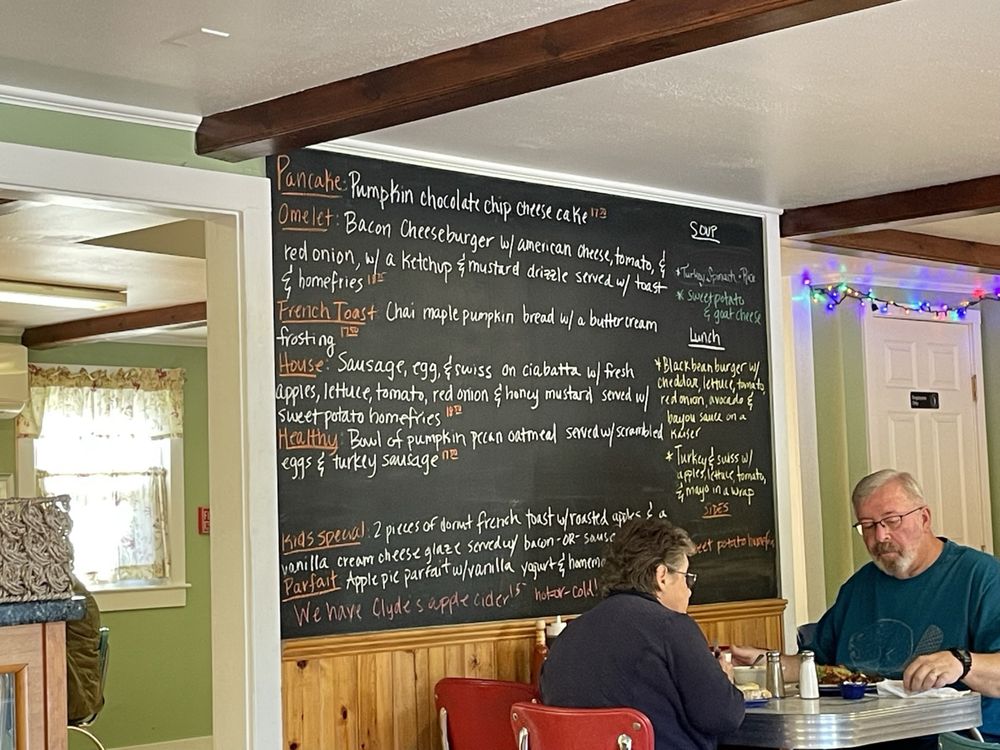 Pancake: Pumpkin chocolate chip cheese cake
Omelet: Bacon Cheeseburger w/ american cheese, tomato, &
red onion, w/ a ketchup & mustard drizzle served w/ toast
& homefries
French Toast Chai maple pumpkin bread w/ a buttercream
frosting
House: Sausage, egg, & swiss on ciabatta w/ fresh
apples, lettuce, tomato, red onion & honey mustard served w/
sweet potato homefries
Healthy: Bowl of pumpkin pecan oatmeal served w/ scrambled
eggs & turkey sausage
Kids special: 2 pieces of donut french toast w/ roasted apples & a
vanilla cream cheese glaze served w/ bacon -OR- sausa
Parfait: Apple pie parfait w/ vanilla yogurt & homema
We have Clyde's apple cider hot-or-cold!
SOUP
* Turkey, Spinach + Rice
* sweet potato
& goat cheese
Lunch
* Black bean burger w/
cheddar, lettuce, tomato,
red onion, avocado &
bayou sauce on a
Kaiser
* Turkey & swiss w/
apples, lettuce, tomato,
& mayo in a wrap
SIDES
eet potato homefries